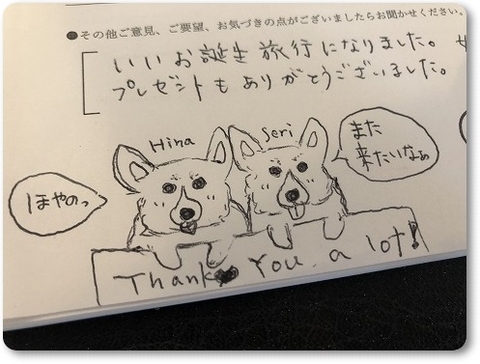 ●その他ご意見、ご要望、お気づきの点がございましたらお聞かせください。
いいお誕生旅行になりました。
プレゼントもありがとうございました。
Hina
Seri
ほやのっ
また
来たいなぁ
Thank You a lot!